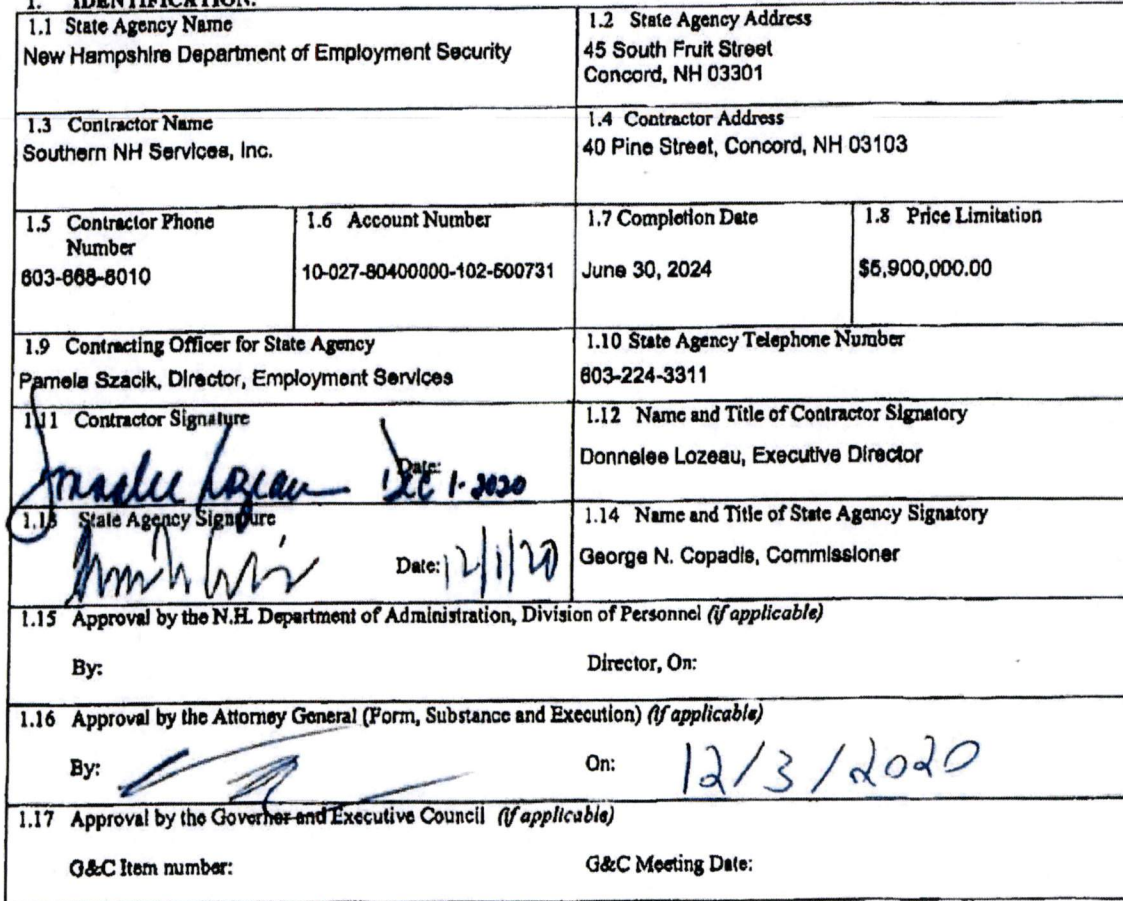 1. IDENTIFICATION.
1.1 State Agency Name
New Hampshire Department of Employment Security
1.2 State Agency Address
45 South Fruit Street
Concord, NH 03301
1.3 Contractor Name
Southern NH Services, Inc.
1.4 Contractor Address
40 Pine Street, Concord, NH 03103
1.5 Contractor Phone
Number
603-668-8010
1.6 Account Number
10-027-80400000-102-500731
1.7 Completion Date
June 30, 2024
1.8 Price Limitation
$5,900,000.00
1.9 Contracting Officer for State Agency
Pamela Szacik, Director, Employment Services
1.10 State Agency Telephone Number
603-224-3311
1.11 Contractor Signature
Donnalee Lozeau Date: Dec 1-2020
1.12 Name and Title of Contractor Signatory
Donnelee Lozeau, Executive Director
1.13 State Agency Signature
Date: 12/1/20
1.14 Name and Title of State Agency Signatory
George N. Copadis, Commissioner
1.15 Approval by the N.H. Department of Administration, Division of Personnel (if applicable)
By: Director, On:
1.16 Approval by the Attorney General (Form, Substance and Execution) (if applicable)
By: On: 12/3/2020
1.17 Approval by the Governer and Executive Council (if applicable)
G&C Item number: G&C Meeting Date: